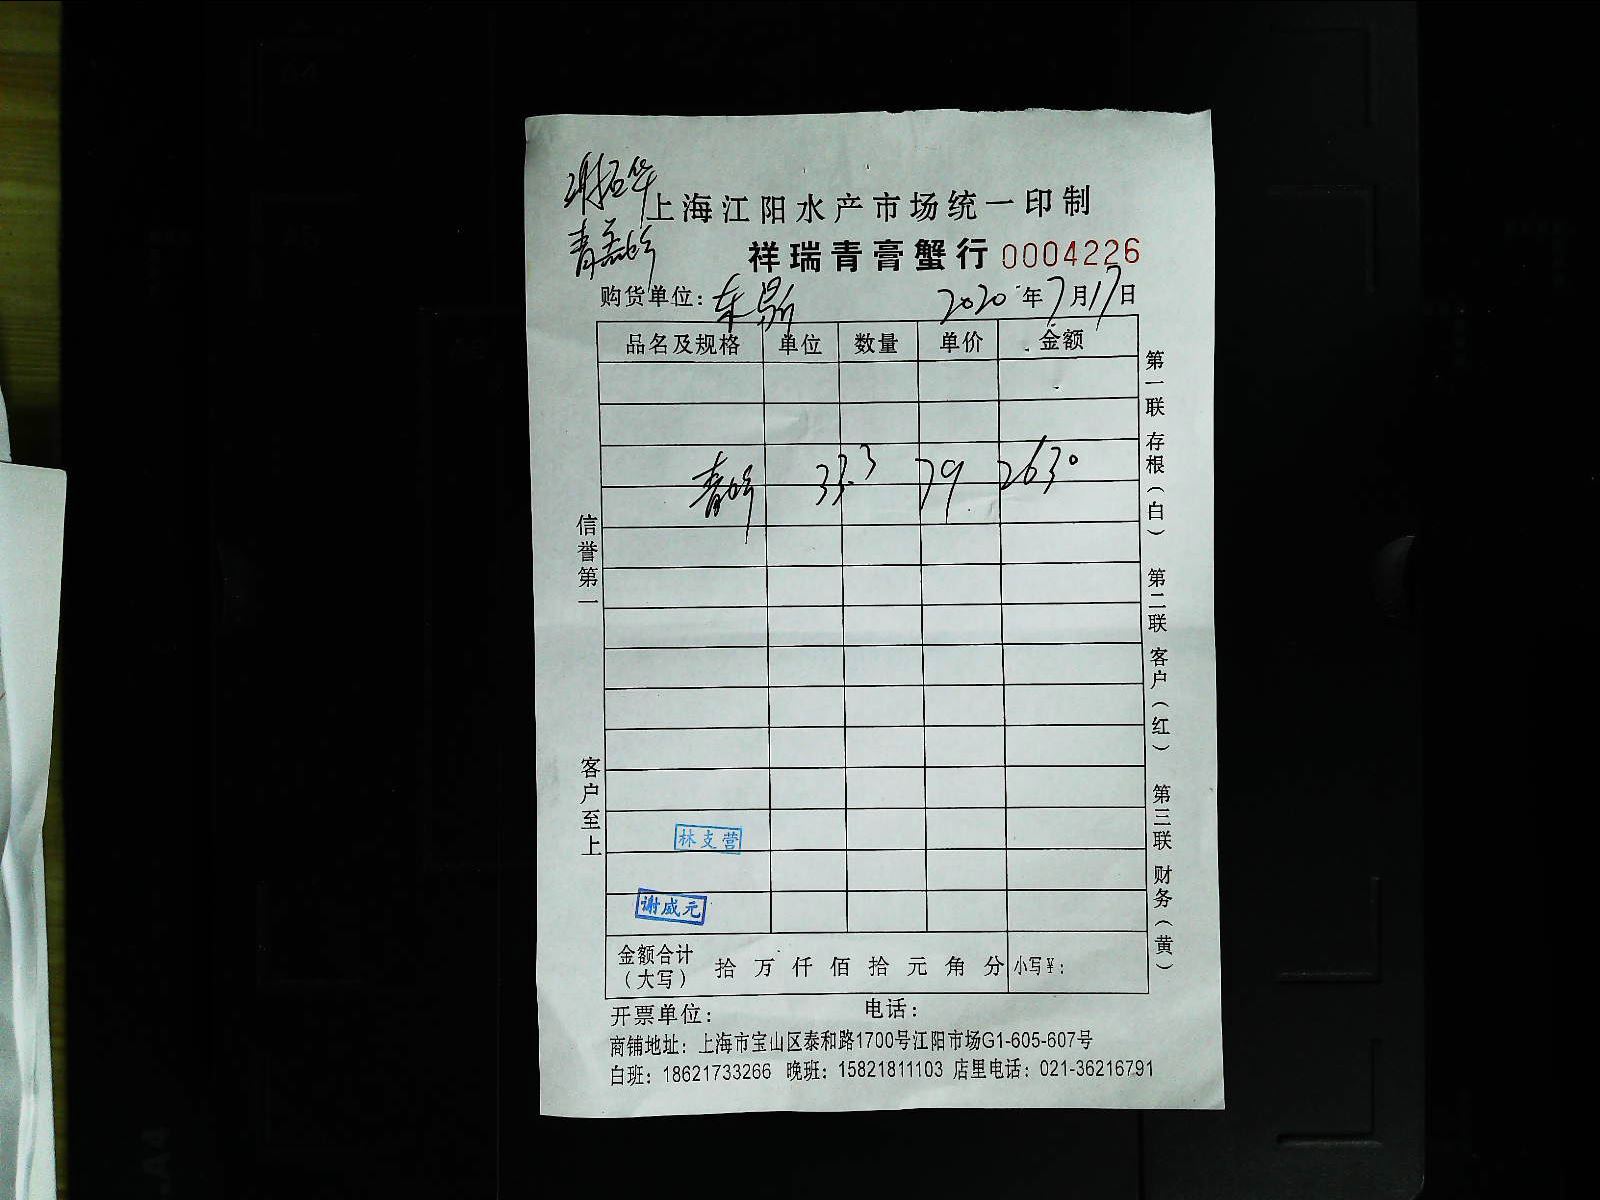 上海江阳水产市场统一印制
祥瑞青膏蟹行 0004226
购货单位： 2020年7月17日
品名及规格 单位 数量 单价 金额
青 33.3 79 2630
林支营
谢威元
金额合计（大写） 拾 万 仟 佰 拾 元 角 分 小写￥：
开票单位： 电话：
商铺地址：上海市宝山区泰和路1700号江阳市场G1-605-607号
白班：18621733266 晚班：15821811103 店里电话：021-36216791
信誉第一 客户至上
第一联 存根（白） 第二联 客户（红） 第三联 财务（黄）